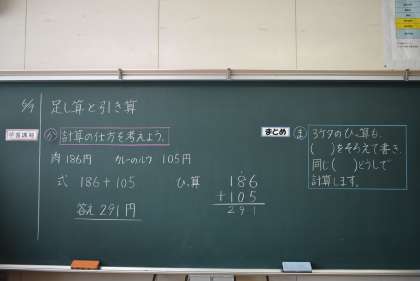 足し算と引き算
学習課題
か 計算の仕方を考えよう。
肉 186円 カレーのルウ 105円
式 186+105
ひっ算
186
+105
291
答え 291円
まとめ
ま 3ケタのひっ算も、
( )をそろえて書き、
同じ( )どうしで
計算します。